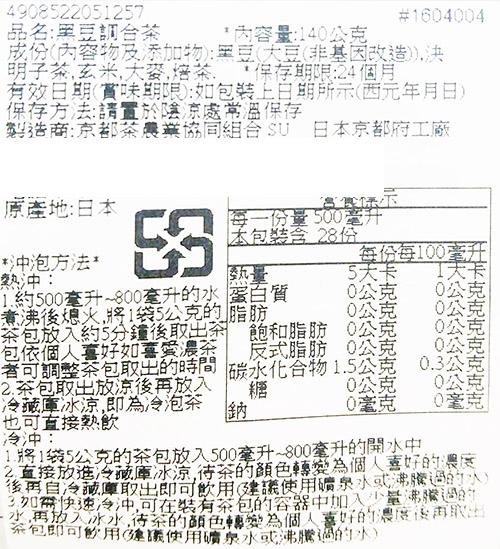 4908522051257 #1604004
品名:黑豆調合茶 *內容量:140公克
成份(內容物及添加物):黑豆(大豆(非基因改造)),決
明子茶,玄米,大麥,焙茶. *保存期限:24個月
有效日期(賞味期限):如包裝上日期所示(西元年月日)
保存方法:請置於陰涼處常溫保存
製造商:京都茶農業協同組合SU 日本京都府工廠
原產地:日本
營養標示
每一份量 500毫升
本包裝含 28份
每份 每100毫升
熱量 5大卡 1大卡
蛋白質 0公克 0公克
脂肪 0公克 0公克
飽和脂肪 0公克 0公克
反式脂肪 0公克 0公克
碳水化合物 1.5公克 0.3公克
糖 0公克 0公克
鈉 0毫克 0毫克
*沖泡方法*
熱沖:
1.約500毫升~800毫升的水
煮沸後熄火,將1袋5公克的
茶包放入約5分鐘後取出茶
包依個人喜好如喜愛濃茶
者可調整茶包取出的時間
2.茶包取出放涼後再放入
冷藏庫冰涼,即為冷泡茶
也可直接熱飲
冷沖:
1.將1袋5公克的茶包放入500毫升~800毫升的開水中
2.直接放進冷藏庫冰涼,待茶的顏色轉變為個人喜好的濃度
後再自冷藏庫取出即可飲用(建議使用礦泉水或沸騰過的水)
3.如需快速冷沖,可在裝有茶包的容器中加入少量沸騰過的
水,再放入冰水,待茶的顏色轉變為個人喜好的濃度後再取出
茶包即可飲用(建議使用礦泉水或沸騰過的水)